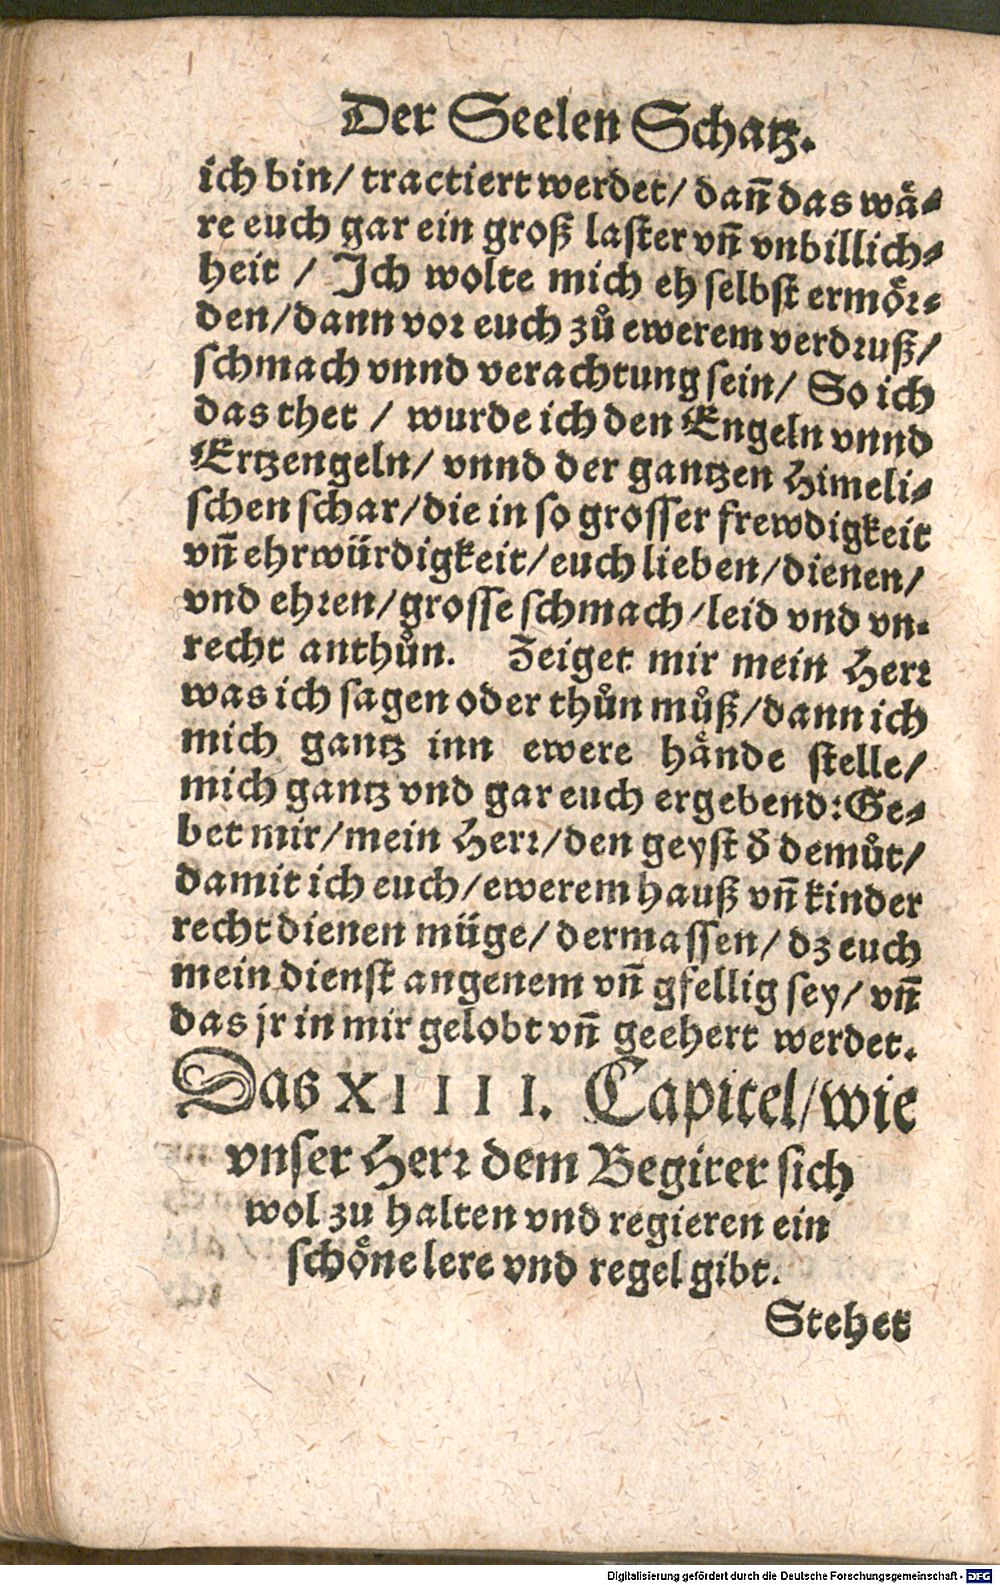 Der Seelen Schatz.
ich bin/ tractiert werdet/ dañ das wå-
re euch gar ein groß laster vñ vnbillich-
heit / Ich wolte mich eh selbst ermőr-
den/dann vor euch zů ewerem verdruß/
schmach vnnd verachtung sein/ So ich
das thet / wurde ich den Engeln vnnd
Ertzengeln/ vnnd der gantzen Himeli-
schen schar/die in so grosser frewdigkeit
vñ ehrwürdigkeit/euch lieben/dienen/
vnd ehren/grosse schmach/leid vnd vn-
recht anthůn. Zeiget mir mein Herr
was ich sagen oder thůn můß/dann ich
mich gantz inn ewere hånde stelle/
mich gantz vnd gar euch ergebend: Ge-
bet mir/mein Herr/den geyst ð demůt/
damit ich euch/ewerem hauß vñ kinder
recht dienen müge/ dermassen/ dz euch
mein dienst angenem vñ gfellig sey/ vñ
das jr in mir gelobt vñ geehert werdet.
Das XIIII. Capitel/wie
vnser Herr dem Begirer sich
wol zu halten vnd regieren ein
schőne lere vnd regel gibt.
Stehet
Digitalisierung gefördert durch die Deutsche Forschungsgemeinschaft - DFG